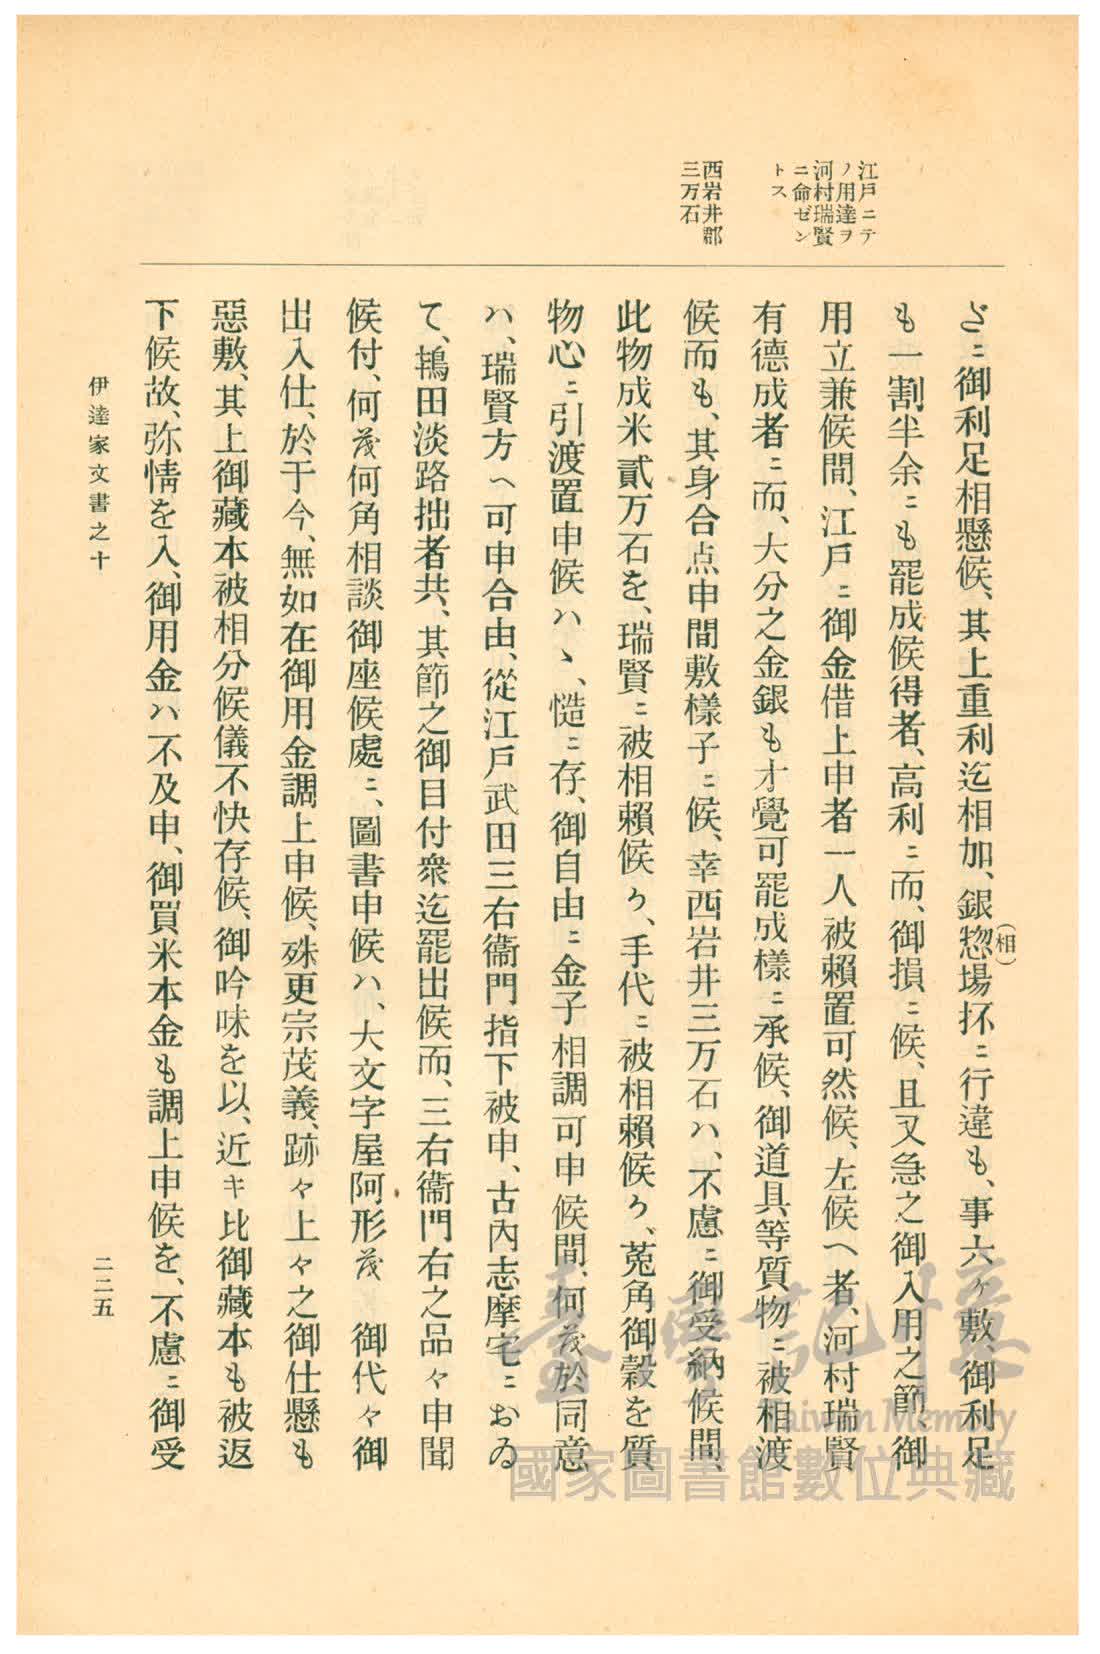 江戸ニテ
ノ用達ヲ
河村瑞賢
ニ命ゼン
トス
西岩井郡
三万石
ざニ御利足相懸候、其上重利迄相加、銀惣(相)場抔ニ行違も、事六ヶ敷、御利足
も一割半余ニも罷成候得者、高利ニ而、御損ニ候、且又急之御入用之節、御
用立兼候間、江戸ニ御金借上申者一人被賴置可然候、左候ヘ者、河村瑞賢
有德成者ニ而、大分之金銀も才覺可罷成樣ニ承候、御道具等質物ニ被相渡
候而も、其身合点申間敷樣子ニ候、幸西岩井三万石ハ、不慮ニ御受納候間、
此物成米貳万石を、瑞賢ニ被相賴候ゟ、手代ニ被相賴候ゟ、菟角御穀を質
物心ニ引渡置申候ハヽ、慥ニ存、御自由ニ金子相調可申候間、何茂於同意
ハ、瑞賢方へ可申合由、從江戸武田三右衞門指下被申、古內志摩宅ニおゐ
て、鴇田淡路拙者共、其節之御目付衆迄罷出候而、三右衞門右之品々申聞
候付、何茂何角相談御座候處ニ、圖書申候ハ、大文字屋阿形茂　御代々御
出入仕、於于今、無如在御用金調上申候、殊更宗茂義、跡々上々之御仕懸も
惡敷、其上御藏本被相分候儀不快存候、御吟味を以、近キ比御藏本も被返
下候故、弥情を入、御用金ハ不及申、御買米本金も調上申候を、不慮ニ御受
伊達家文書之十
二二五
臺灣記憶
Taiwan Memory
國家圖書館數位典藏